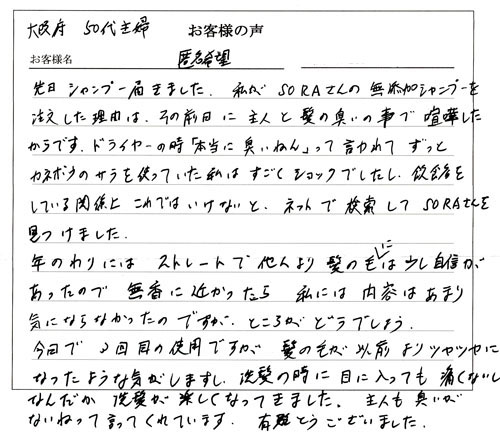 大阪府 50代主婦 お客様の声
お客様名 匿名希望
先日シャンプー届きました。私がSORAさんの無添加シャンプーを
注文した理由は、その前日に主人と髪の臭いの事で喧嘩した
からです。ドライヤーの時「本当に臭いねん」って言われて ずっと
カネボウのサラを使っていた私はすごくショックでしたし、飲食店を
している関係上 これではいけないと、ネットで検索してSORAさんを
見つけました。
年のわりには ストレートで他人より髪の毛には少し自信が
あったので 無香に近かったら 私には内容はあまり
気にならなかったのですが、ところがどうでしょう。
今日で2回目の使用ですが 髪の毛が以前よりツヤツヤに
なったような気がしますし、洗髪の時に目に入っても痛くないし
なんだか 洗髪が楽しくなってきました。主人も臭いが
ないねって言ってくれています。有難とうございました。